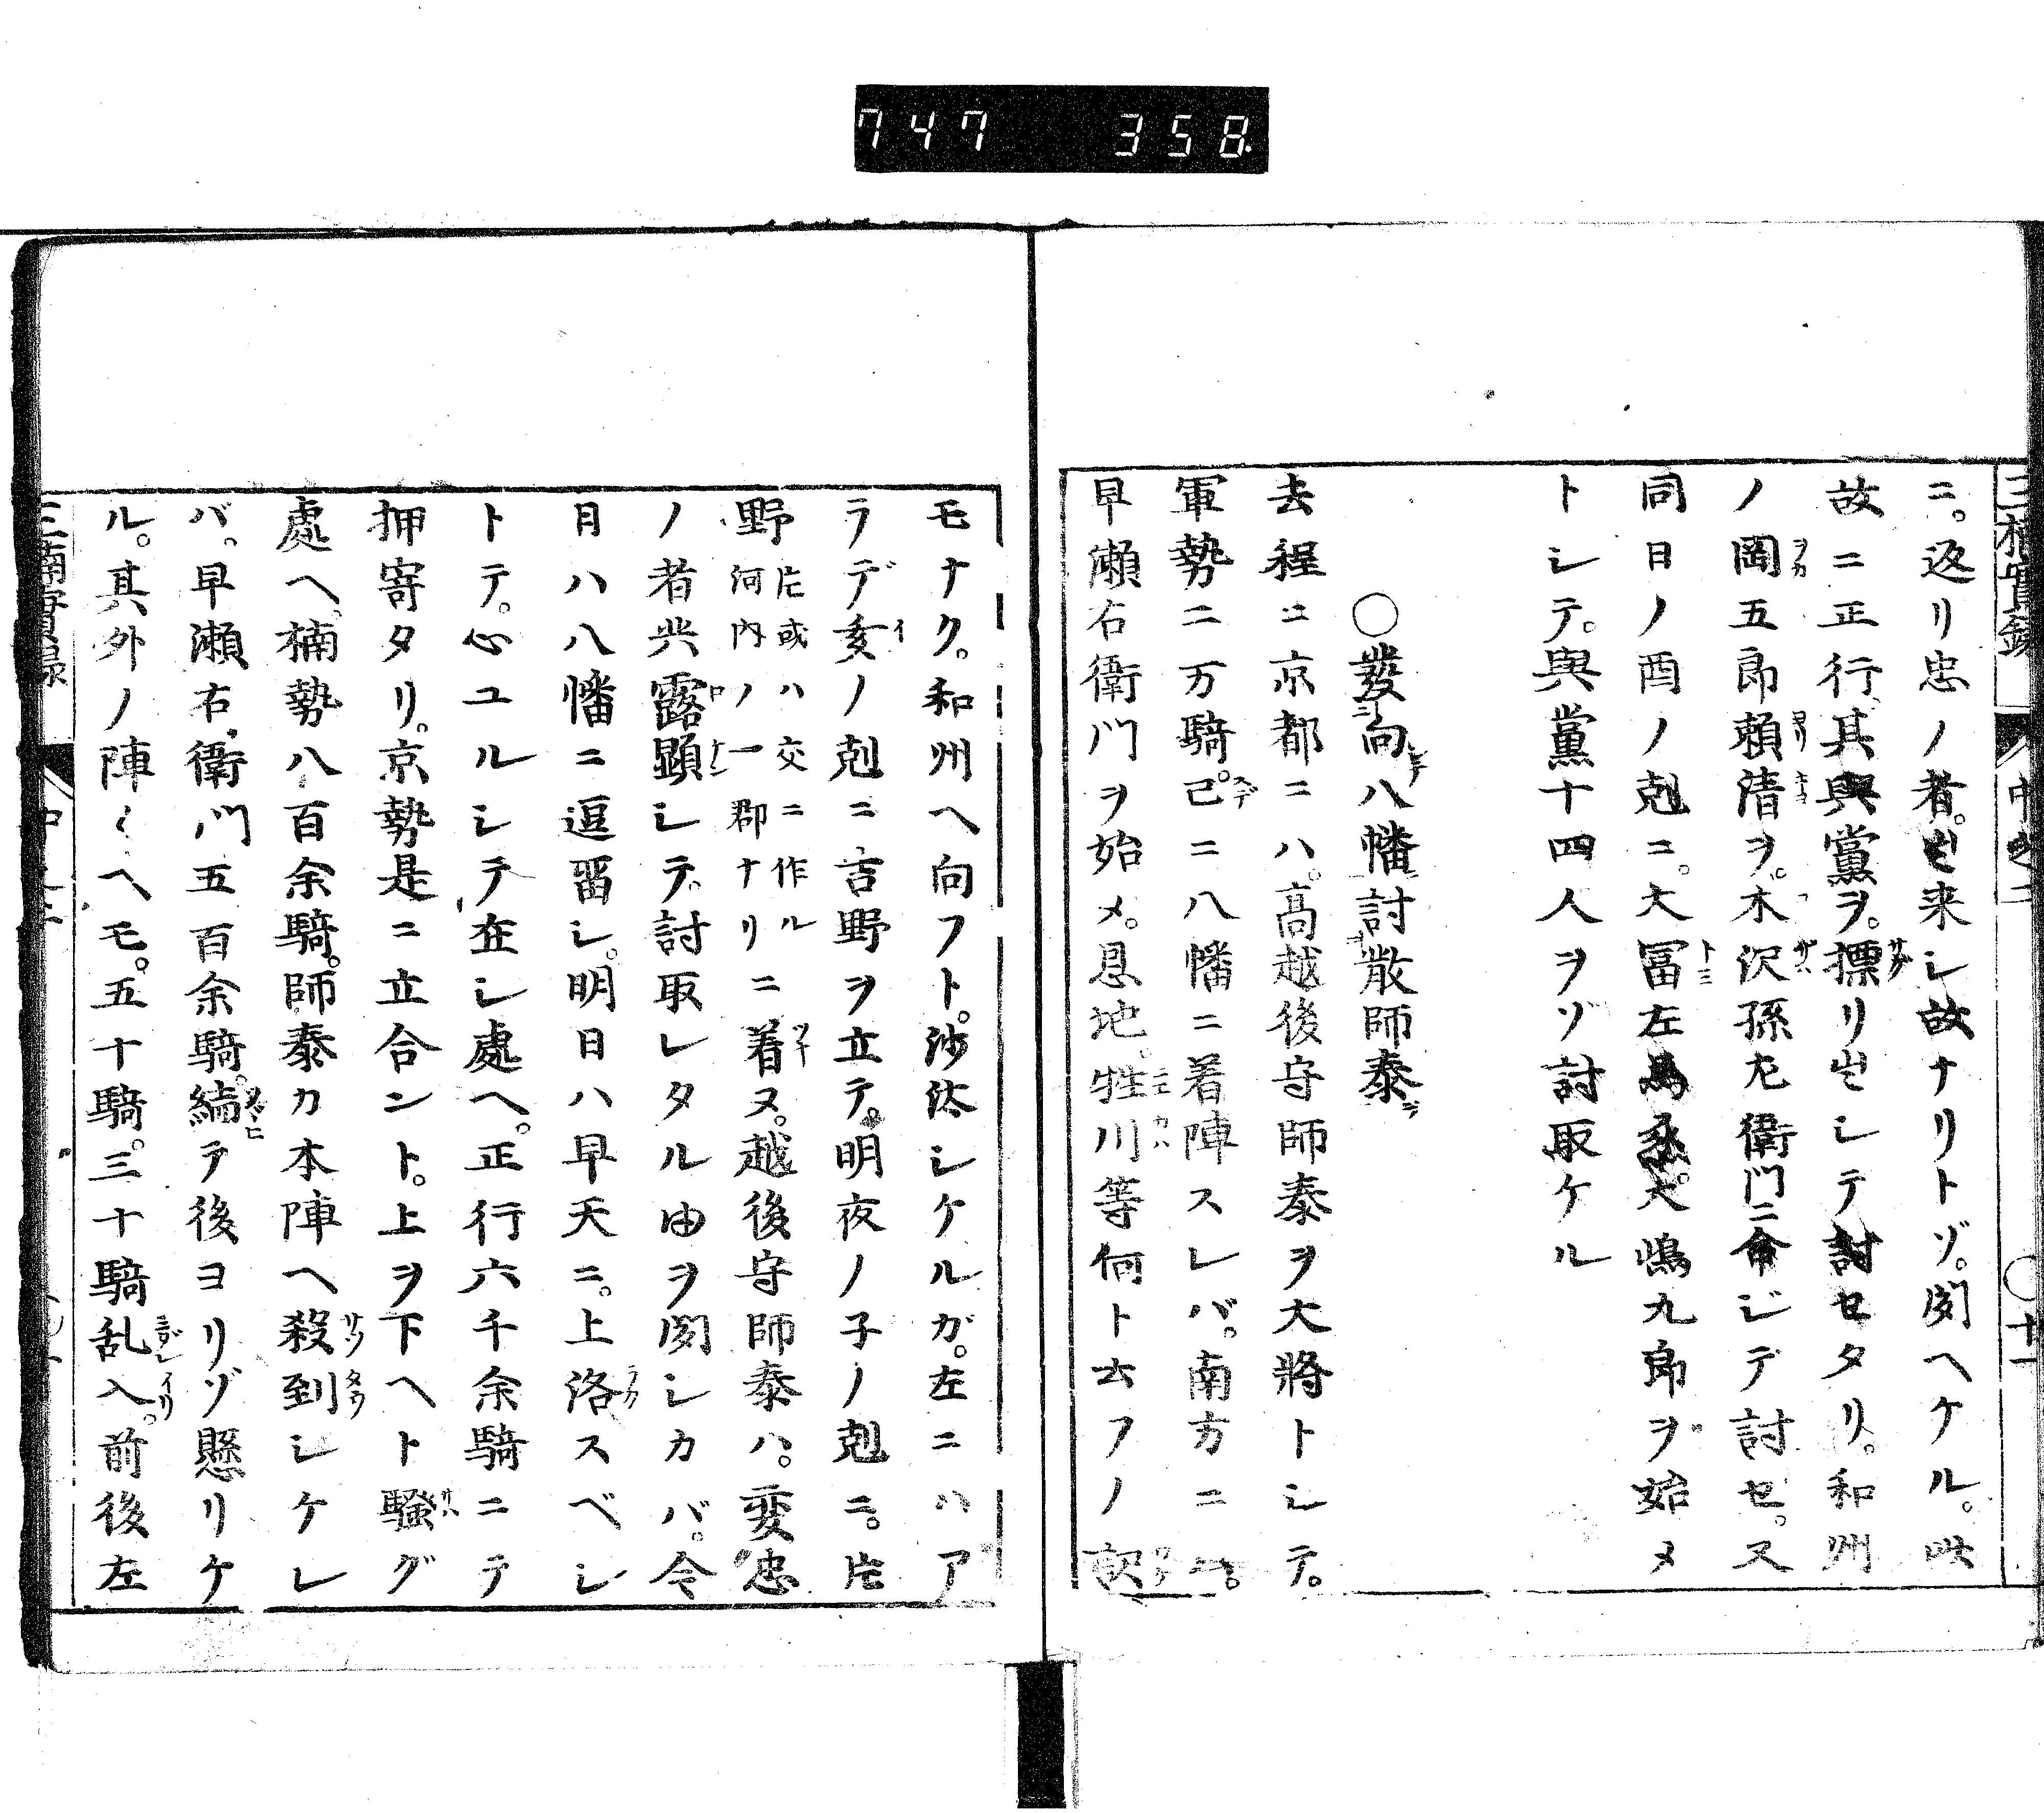 747 358
三楠實録 中之二 ○十一
ニ。返リ忠ノ者。出来シ故ナリトゾ。聞ヘケル。此
故ニ正行、其與黨ヲ。摽リ出シテ討セタリ。和州
ノ岡五郎頼清ヲ。木沢孫左衛門ニ命ジデ討セ。又
同日ノ酉ノ剋ニ。大冨左馬丞。大嶋九郎ヲ始メ
トシテ。與黨十四人ヲゾ討取ケル
○發向八幡討散師泰
去程ニ京都ニハ。高越後守師泰ヲ大將トシテ。
軍勢二万騎。已ニ八幡ニ着陣スレバ。南方ニハ。
早瀬右衛門ヲ始メ。恩地。牲川等何ト云フノ訳
モナク。和州ヘ向フト。沙汰シケルガ。左ニハア
ラデ亥ノ剋ニ吉野ヲ立テ。明夜ノ子ノ剋ニ。片
野片或ハ交ニ作ル河内ノ一郡ナリニ着ヌ。越後守師泰ハ。変忠
ノ者共露顕シテ。討取レタル由ヲ聞シカバ。今
日ハ八幡ニ逗留シ。明日ハ早天ニ。上洛スベシ
トテ。心ユルシテ在シ處ヘ。正行六千余騎ニテ
押寄タリ。京勢是ニ立合ント。上ヲ下ヘト騒グ
處ヘ。楠勢八百余騎。師泰カ本陣ヘ殺到シケレ
バ。早瀬右衛門五百余騎。続テ後ヨリゾ懸リケ
ル。其外ノ陣〱ヘモ。五十騎。三十騎乱入。前後左
三楠實録 中之二